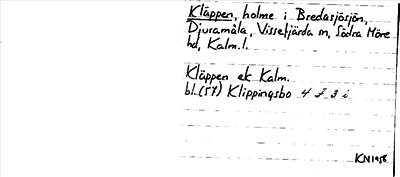 Kläppen, holme i Bredasjösjön,
Djuramåla, Vissefjärda sn, Södra Möre
hd, Kalm.l.
Kläppen ek Kalm.
bl.(57) Klippingsbo 4 F 3 i
KN1958